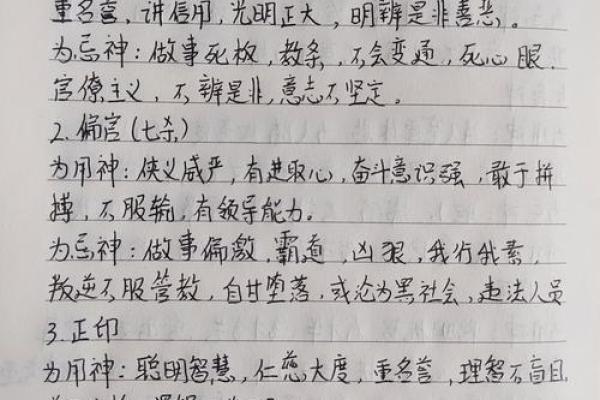 重名誉，讲信用，光明正大，明辨是非善恶。
为忌神：做事死板，教条，不会变通，死心眼，
官僚主义，不辨是非，意志不坚定。
2.偏官(七杀)
为用神：侠义威严，有进取心，奋斗意识强，敢于拼
搏，不服输，有领导能力。
为忌神：做事偏激，霸道，凶狠，我行我素，
叛逆不服管教，自甘堕落，或沦为黑社会，违法人员
3.正印
为用神：聪明智慧，仁慈大度，重名誉，理智不盲目